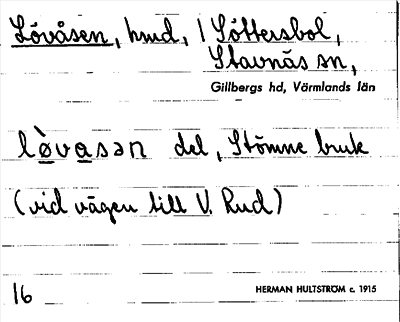 Lövåsen, hmd, / Söttersbol,
Stavnäs sn,
Gillbergs hd, Värmlands län
lò̤va̤sən del, Stömne bruk
(vid vägen till V. Rud)
16
HERMAN HULTSTRÖM c. 1915